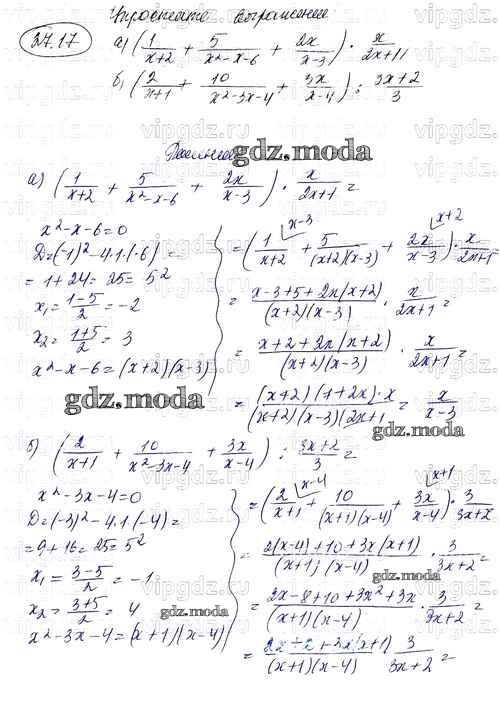 37.17 Упростите выражение
а) (1/(x+2) + 5/(x²-x-6) + 2x/(x-3)) · x/(2x+1)
б) (2/(x+1) + 10/(x²-3x-4) + 3x/(x-4)) : (3x+2)/3
Решение
gdz.moda
а) (1/(x+2) + 5/(x²-x-6) + 2x/(x-3)) · x/(2x+1) =
x²-x-6=0
D=(-1)²-4·1·(-6)=
=1+24=25=5²
x₁ = (1-5)/2 = -2
x₂ = (1+5)/2 = 3
x²-x-6=(x+2)(x-3)
x-3 x+2
= (1/(x+2) + 5/((x+2)(x-3)) + 2x/(x-3)) · x/(2x+1)
= (x-3+5+2x(x+2))/((x+2)(x-3)) · x/(2x+1) =
= (x+2+2x(x+2))/((x+2)(x-3)) · x/(2x+1) =
= ((x+2)(1+2x)·x)/((x+2)(x-3)(2x+1 = x/(x-3)
gdz.moda
gdz.moda
б) (2/(x+1) + 10/(x²-3x-4) + 3x/(x-4)) : (3x+2)/3 =
x²-3x-4=0
D=(-3)²-4·1·(-4)=
=9+16=25=5²
x₁ = (3-5)/2 = -1
x₂ = (3+5)/2 = 4
x²-3x-4=(x+1)(x-4)
gdz.moda
x-4 x+1
= (2/(x+1) + 10/((x+1)(x-4)) + 3x/(x-4)) · 3/(3x+2
= (2(x-4)+10+3x(x+1))/((x+1)(x-4)) · 3/(3x+2) =
gdz.moda
= (2x-8+10+3x²+3x)/((x+1)(x-4)) · 3/(3x+2) =
= (2x+2+3x(x+1))/((x+1)(x-4)) · 3/(3x+2) =